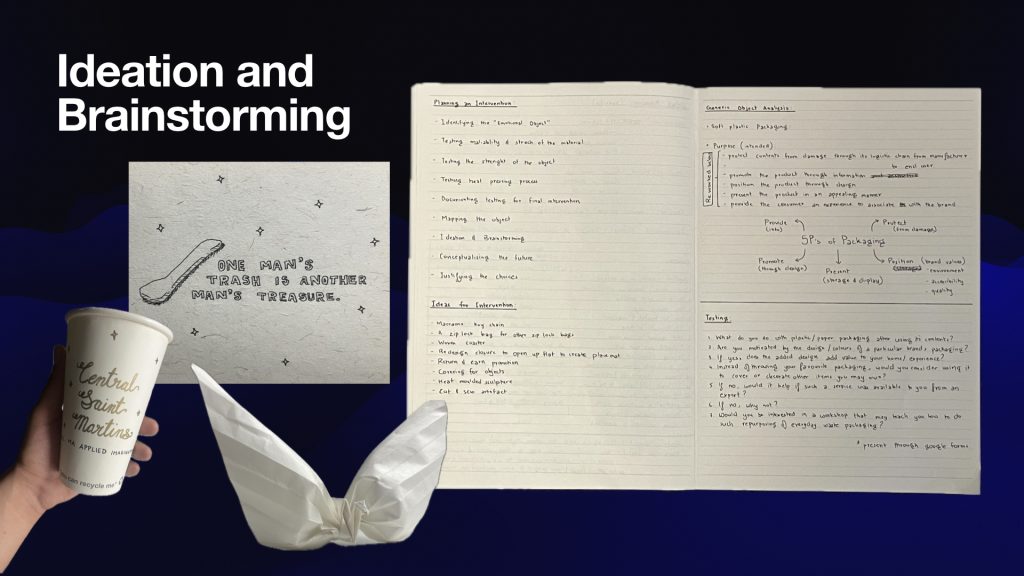 Ideation and
Brainstorming
ONE MAN'S
TRASH IS ANOTHER
MAN'S TREASURE.
Central
Saint
Martins
MA APPLIED IMAGINATION
can recycle me
Planning an Intervention:
- Identifying the "Emotional Object"
- Testing maliability & strech of the material
- Testing the strenght of the object
- Testing heat pressing process
- Documenting testing for final intervention
- Mapping the object
- Ideation & Brainstorming
- Conceptualising the future
- Justifying the choices
Ideas for Intervention:
- Macrame key chain
- A zip lock bag for other zip lock bags
- Woven coaster
- Redesign closure to open up flat to create place mat
- Return & earn promotion
- Covering for objects
- Heat moulded sculpture
- Cut & sew artefact
Generic Object Analysis:
• Soft plastic Packaging
* Purpose (intended)
Reworded below
- protect contents from damage through its logistic chain from manufacturer
to end user
- promote the product through information
- position the product through design
- present the product in an appealing manner
- provide the consumer an experience to associate with the brand
Provide
(info)
Protect
(from damage)
5P's of Packaging
Promote
(through design)
Present
(storage & display)
Position (brand values)
- environment
- accessibility
- quality
Testing:
1. What do you do with plastic/ paper packaging after using its contents?
2. Are you motivated by the design/colours of a particular brand's packaging?
3. If yes, does the added design add value to your home/ experience?
4. Instead of throwing your favourite packaging, would you consider using it
to cover or decorate other items you may own?
5. If no, would it help if such a service was available to you from an
expert?
6. If no, why not?
7. Would you be interested in a workshop that may teach you how to do
such repurposing of everyday waste packaging?
* present through google forms